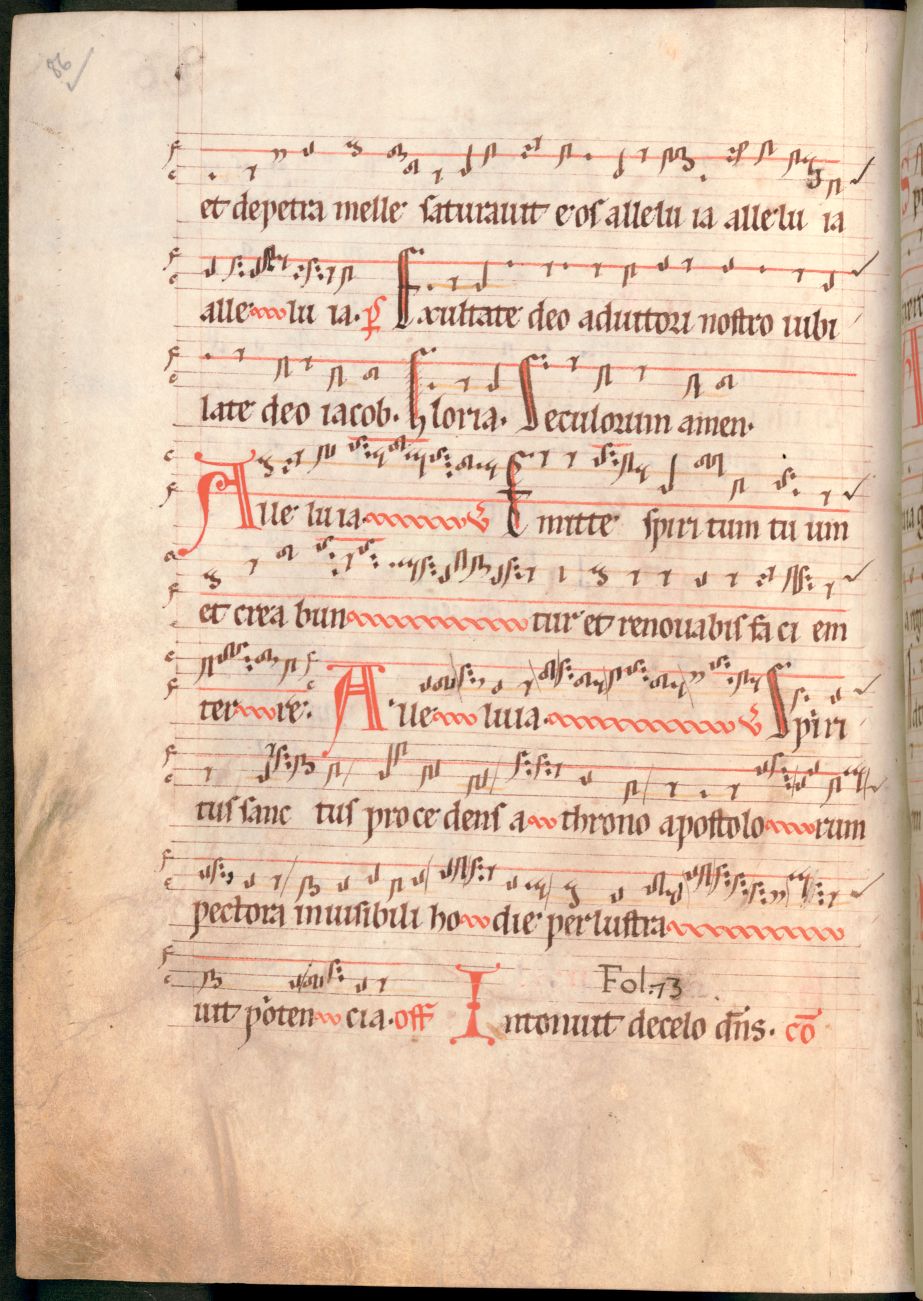 86
et de petra melle saturauit eos allelu ia allelu ia
alle lu ia. p̄s Exultate deo adiutori nostro iubi
late deo iacob. Gloria. Seculorum amen.
Alle lu ia. v Emitte spiri tum tu um
et crea bun tur et renouabis fa ci em
ter re. Alle luia v Spiri
tus sanc tus proce dens a throno apostolo rum
pectora inuisibili ho die perlustra
Fol. 73
uit poten cia. off Intonuit de celo dn̄s. cō